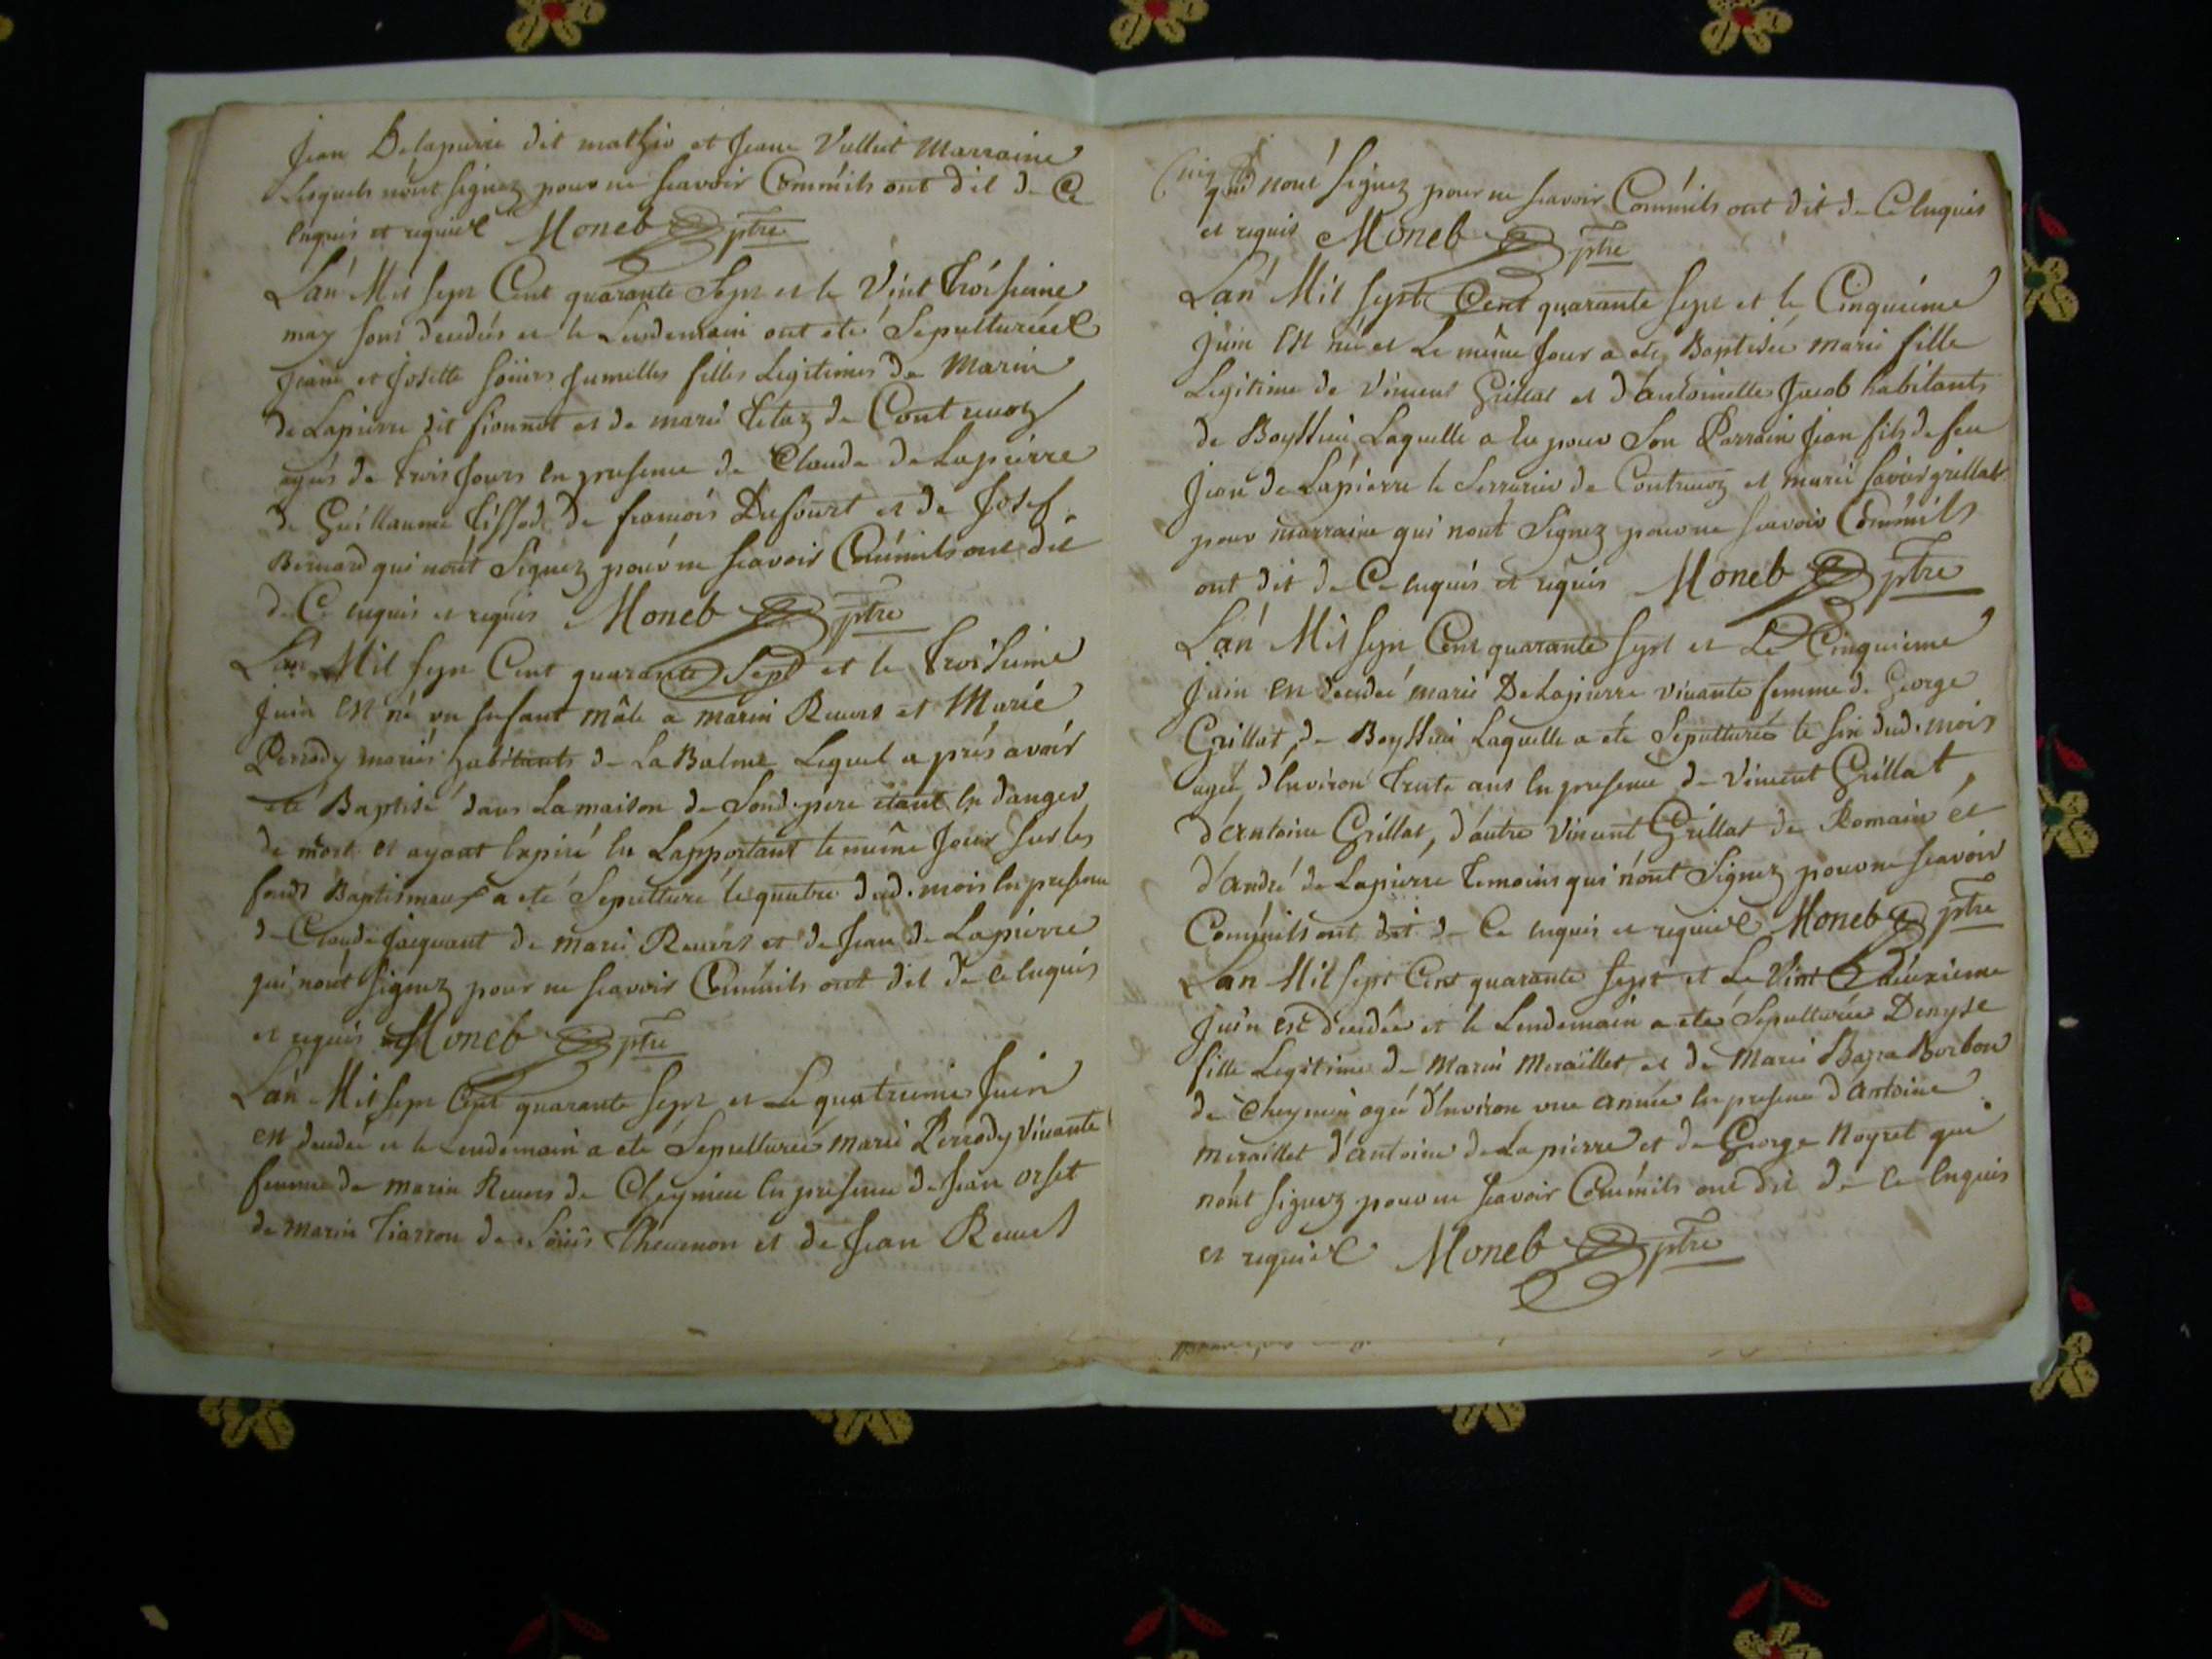 Jean Delapierre dit mathio et Jeane Vulliet Marraine
Lesquels n'ont signez pour ne scavoir Comm'ils ont dit de Ce
enquis et requis Moneb ptre
L'an Mil sept Cent quarante Sept et le Vint troisieme
may sont decedées et le Lendemain ont eté Sepulturées
Jeane et Josette soëurs Jumelles filles Legitimes de Marin
de Lapierre dit et de marie de Contrevoz
agées de trois Jours en presence de Claude de Lapierre
de Guillaume Tissod de francois Dufourt et de Josef
Bernard qui n'ont Signez pour ne scavoir Comm'ils ont dit
de Ce enquis et requis Moneb ptre
L'an Mil sept Cent quarante Sept et le troisieme
Juin est né un enfant mâle a marin Revers et Marie
Perrody mariés habitants de La Balme Lequel aprés avoir
eté Baptisé dans La maison de Sond. pere etant en danger
de mort et ayant expiré en L'apportant le même Jour sur les
fonds Baptismaux a eté Sepulturé le quatre dud. mois en presence
de Claude Jacquant de marin Revers et de Jean de Lapierre
qui n'ont signez pour ne scavoir Comm'ils ont dit de ce enquis
et requis Moneb ptre
L'an Mil sept Cent quarante sept et Le quatrieme Juin
est decedée et le Lendemain a eté Sepulturée marie Perrody vivante
femme de marin Revers de Cheynieu en presence de Jean orset
de marin Tiarron de Loüis Thevenon et de Jean Revers
qui n'ont signez pour ne scavoir Comm'ils ont dit de Ce enquis
et requis Moneb ptre
L'an Mil sept Cent quarante sept et le Cinquieme
Juin est née et Le même Jour a eté Baptisée marie fille
Legitime de Vincent Grillat et d'antoinette Jacob habitants
de Boyssieu Laquelle a eu pour Son Parrain Jean fils de feu
Jean de Lapierre le Serrurier de Contrevoz et marie grillat
pour marraine qui n'ont Signez pour ne scavoir Comm'ils
ont dit de Ce enquis et requis Moneb ptre
L'an Mil sept Cent quarante sept et Le Cinquieme
Juin est decedée marie DeLapierre vivante femme de George
Grillat de Boyssieu Laquelle a eté Sepulturée le six dud. mois
agée d'environ trente ans en presence de Vincent Grillat,
d'Antoine Grillat, d'autre Vincent Grillat de Romain et
d'andré de Lapierre temoins qui n'ont Signez pour ne scavoir
Comm'ils ont dit de Ce enquis et requis Moneb ptre
L'an Mil sept Cent quarante sept et Le Vint deuxieme
Juin est decedée et le Lendemain a eté Sepulturée Denyse
fille Legitime de Marin Meraillet et de Marie Barra Borbon
de Cheynieu agée d'environ une année en presence d'Antoine
meraillet d'antoine de Lapierre et de George Noyret qui
n'ont signez pour ne scavoir Comm'ils ont dit de Ce enquis
et requis Moneb ptre